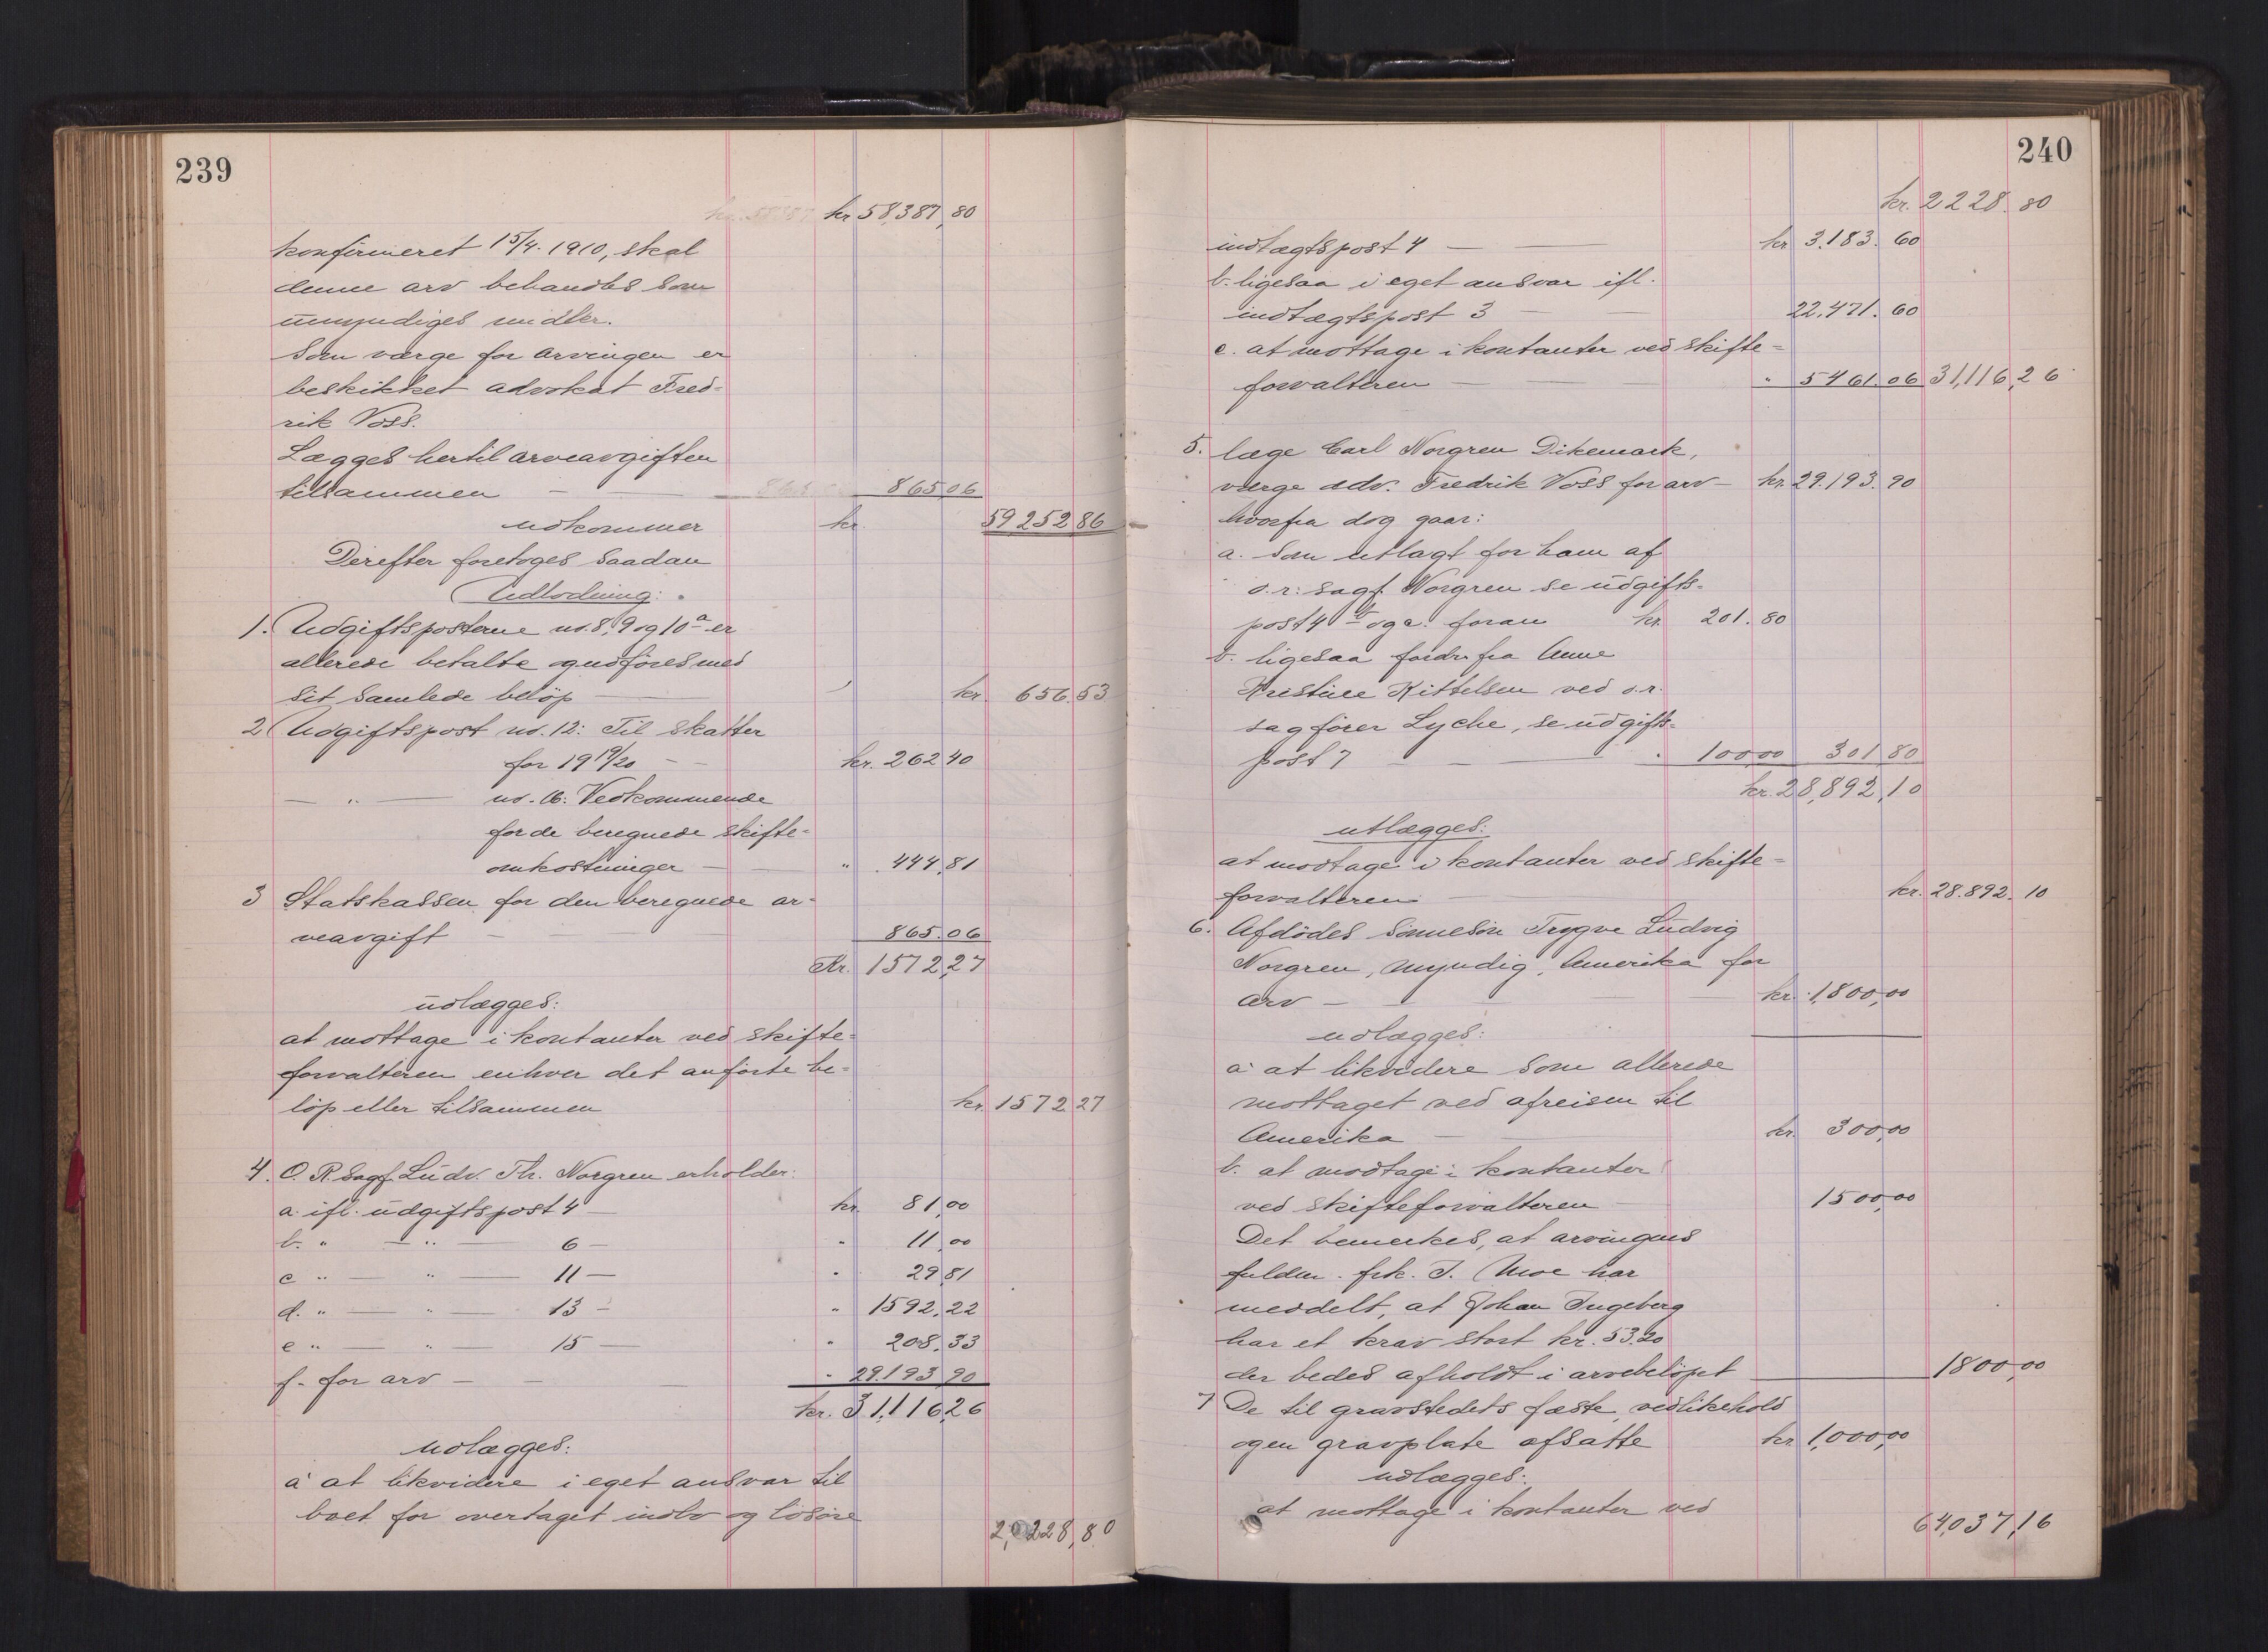 239
kr 58,387,80
konfirmeret 15/4. 1910, skal
denne arv behandles som
umyndiges midler.
Som værge for arvingen er
beskikket advokat Fred-
rik Voss.
Lægges hertil arveavgiften
tilsammen — — 865,06
udkommer kr. 59,252,86
Derefter foretoges saadan
Udlodning:
1. Udgiftsposterne no. 8, 9 og 10a er
allerede betalte og udföres med
sit samlede belöp — kr. 656.53
2 Udgiftspost no. 12: Til skatter
for 1919/20 — — kr. 262,40
— " — no. 16: Vedkommende
for de beregnede skifte-
omkostninger — " 444,81
3 Statskassen for den beregnede ar-
veavgift — — 865.06
Kr. 1572,27
udlægges:
at mottage i kontanter ved skifte-
forvalteren enhver det anförte be-
löp eller tilsammen kr. 1572,27
4. O. R. Sagf. Ludv. Th. Norgren erholder:
a. ifl. udgiftspost 4 — kr. 81,00
b. " — " — 6 — " 11,00
c " — " — 11 — " 29,81
d. " — " — 13 — " 1592,22
e " — " — 15 — " 208,33
f. for arv — — " 29.193,90
kr. 31,116,26
udlægges:
a at likvidere i eget ansvar til
boet for overtaget indbo og lösöre
2,228,80
240
kr. 2228.80
indtægtspost 4 — — kr. 3.183.60
b. ligesaa i eget ansvar ifl.
indtægtspost 3 — — 22.471.60
c. at mottage i kontanter ved skifte-
forvalteren — — " 5461.06 31,116,26
5. læge Carl Norgren Dikemark,
værge adv. Fredrik Voss for arv — kr. 29.193.90
hvorfra dog gaar:
a. som utlagt for ham af
o.r. sagf. Norgren se udgifts-
post 4 b og c. foran kr. 201.80
b. ligesaa fordr. fra Anne
Kristine Kittelsen ved o.r.
sagförer Lyche, se udgifts-
post 7 — — " 100,00 301,80
kr. 28,892,10
utlægges:
at modtage i kontanter ved skifte-
forvalteren — kr. 28.892.10
6. Afdödes sönnesön Trygve Ludvig
Norgren, myndig, Amerika for
arv — — kr. 1,800,00
udlægges:
a at likvidere som allerede
mottaget ved afreisen til
Amerika — kr. 300,00
b. at modtage i kontanter
ved skifteforvalteren — 1500,00
Det bemerkes, at arvingens
fuldm. frk. J. Moe har
meddelt, at Johan Ingeberg
har et krav stort kr. 53.20
der bedes afholdt i arvebelöpet — 1800,00
7 De til gravstedets fæste, vedlikehold
og en gravplate afsatte kr. 1,000,00
udlægges:
at mottage i kontanter ved
64,037,16